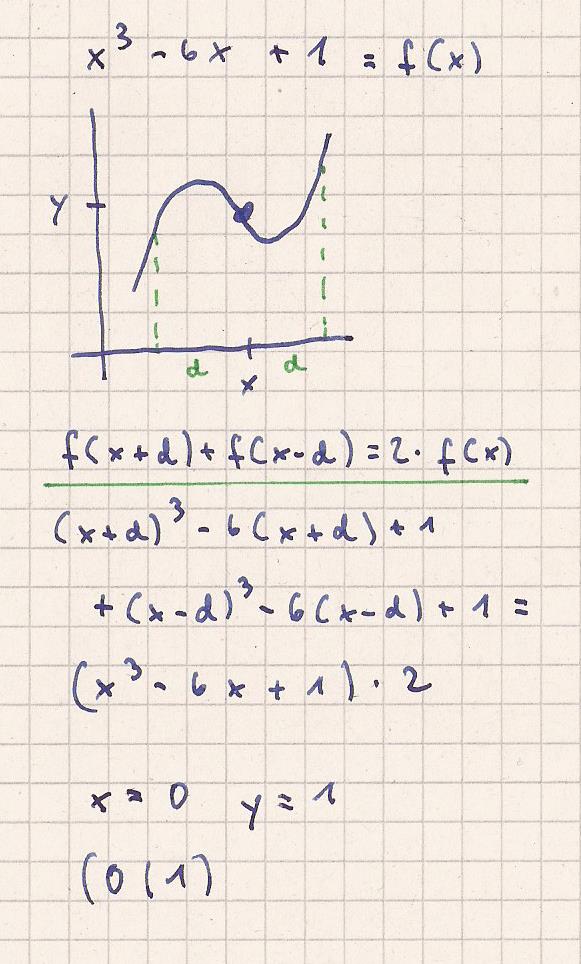 x³ - 6x + 1 = f(x)
y
d d
x
f(x+d) + f(x-d) = 2 · f(x)
(x+d)³ - 6(x+d) + 1
+ (x-d)³ - 6(x-d) + 1 =
(x³ - 6x + 1) · 2
x = 0 y = 1
(0 | 1)